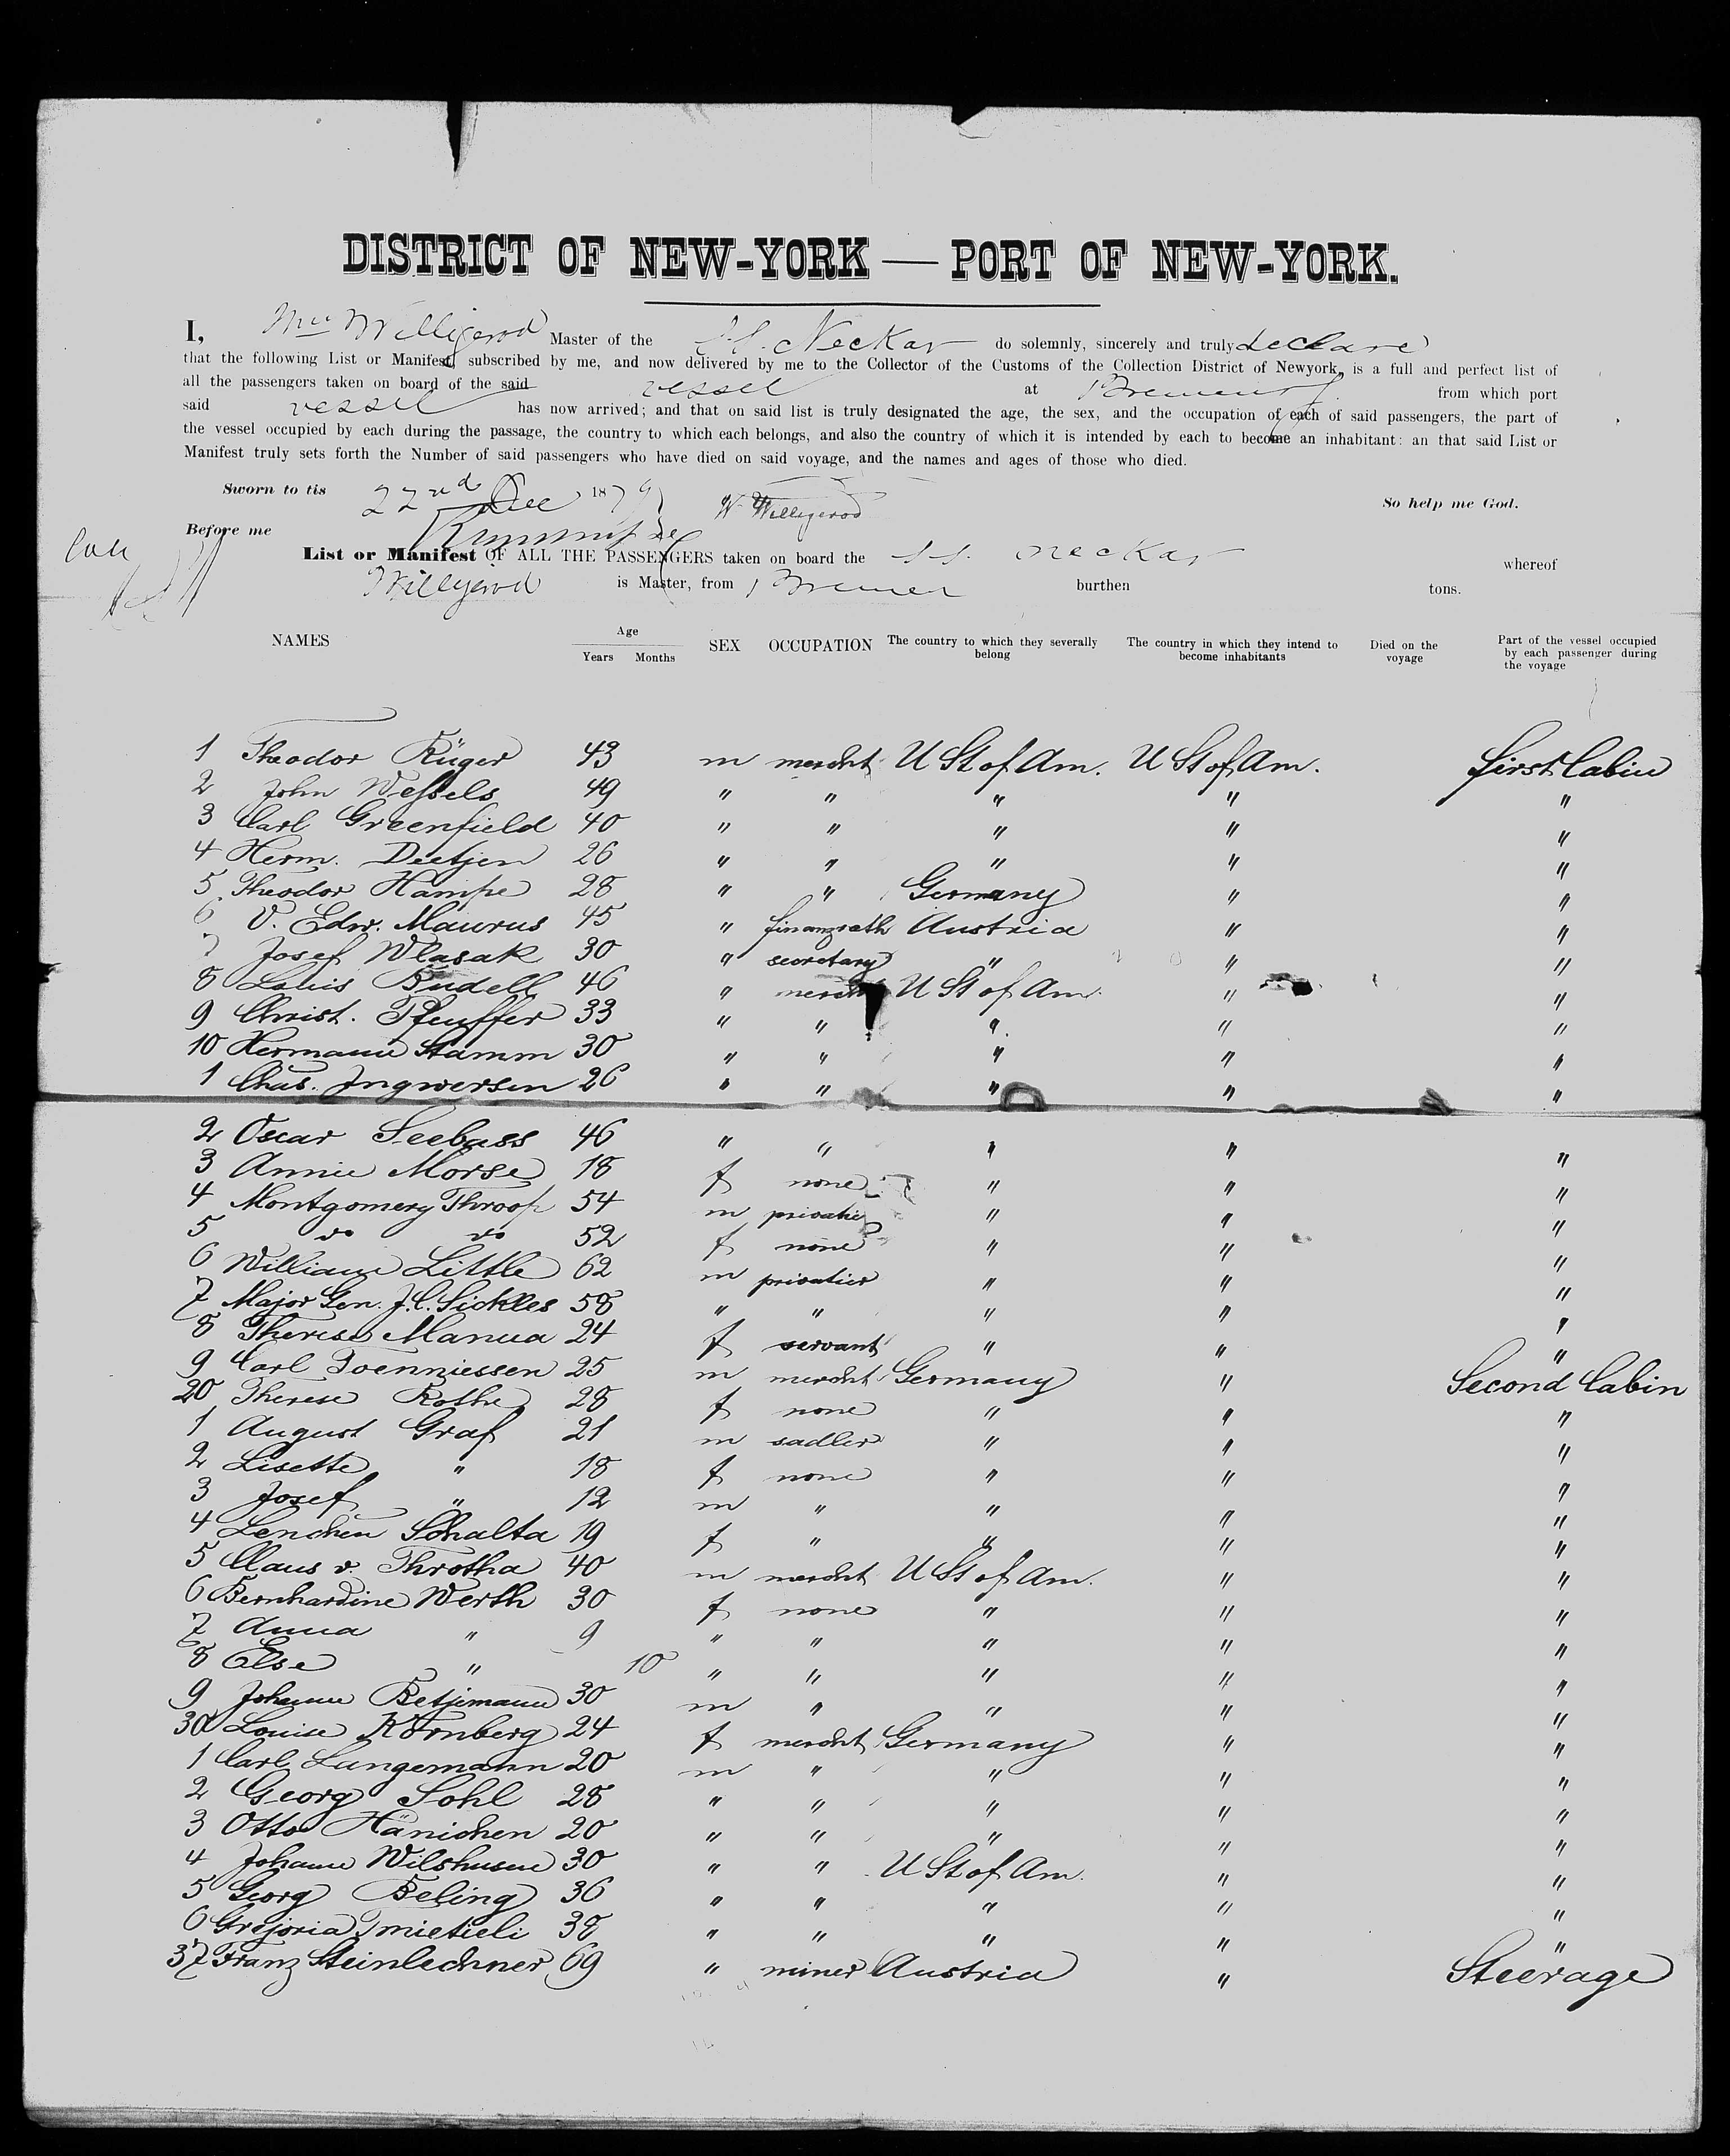 DISTRICT OF NEW-YORK — PORT OF NEW-YORK.
I, Willigerod Master of the S.S. Neckar do solemnly, sincerely and truly declare
that the following List or Manifest, subscribed by me, and now delivered by me to the Collector of the Customs of the Collection District of Newyork, is a full and perfect list of
all the passengers taken on board of the said vessel at Bremen from which port
said vessel has now arrived; and that on said list is truly designated the age, the sex, and the occupation of each of said passengers, the part of
the vessel occupied by each during the passage, the country to which each belongs, and also the country of which it is intended by each to become an inhabitant: an that said List or
Manifest truly sets forth the Number of said passengers who have died on said voyage, and the names and ages of those who died.
Sworn to tis 22nd Dec 1879 W Willigerod So help me God.
Before me
List or Manifest OF ALL THE PASSENGERS taken on board the S.S. Neckar whereof
Willigerod is Master, from Bremen burthen tons.
NAMES Age Years Months SEX OCCUPATION The country to which they severally belong The country in which they intend to become inhabitants Died on the voyage Part of the vessel occupied by each passenger during the voyage
1 Theodor Rüger 43 m mercht U St of Am. U St of Am. first Cabin
2 John Weßels 49 " " " " "
3 Carl Greenfield 40 " " " " "
4 Herm. Deetjen 26 " " " " "
5 Theodor Hampe 28 " " Germany " "
6 V. Edw. Maurus 45 " finanzrath Austria " "
7 Josef Wlasak 30 " secretary " " "
8 Louis Budell 46 " mercht U St of Am. " "
9 Christ. Pfeuffer 33 " " " " "
10 Hermann Stamm 30 " " " " "
1 Chas. Ingwersen 26 " " " " "
2 Oscar Seebass 46 " " " " "
3 Annie Morse 18 f none " " "
4 Montgomery Throop 54 m privatie " " "
5 do do 52 f none " " "
6 William Little 62 m privatier " " "
7 Major Gen. J.C. Sickles 58 " " " " "
8 Therese Manua 24 f servant " " "
9 Carl Toenniessen 25 m mercht Germany " Second Cabin
20 Therese Rothe 28 f none " " "
1 August Graf 21 m sadler " " "
2 Lisette " 18 f none " " "
3 Josef " 12 m " " " "
4 Lenchen Schalta 19 f " " " "
5 Claus v. Throtha 40 m mercht U St of Am. " "
6 Bernhardine Werth 30 f none " " "
7 Anna " 9 " " " " "
8 Else " 10 " " " " "
9 Johann Betjemann 30 m " " " "
30 Louise Körnberg 24 f mercht Germany " "
1 Carl Lungemann 20 m " " " "
2 Georg Sohl 28 " " " " "
3 Otto Hänichen 20 " " " " "
4 Johann Wilshusen 30 " " U St of Am. " "
5 Georg Beling 36 " " " " "
6 Grejoria Tmietieli 38 " " " " "
37 Franz Steinlechner 69 " miner Austria " Steerage